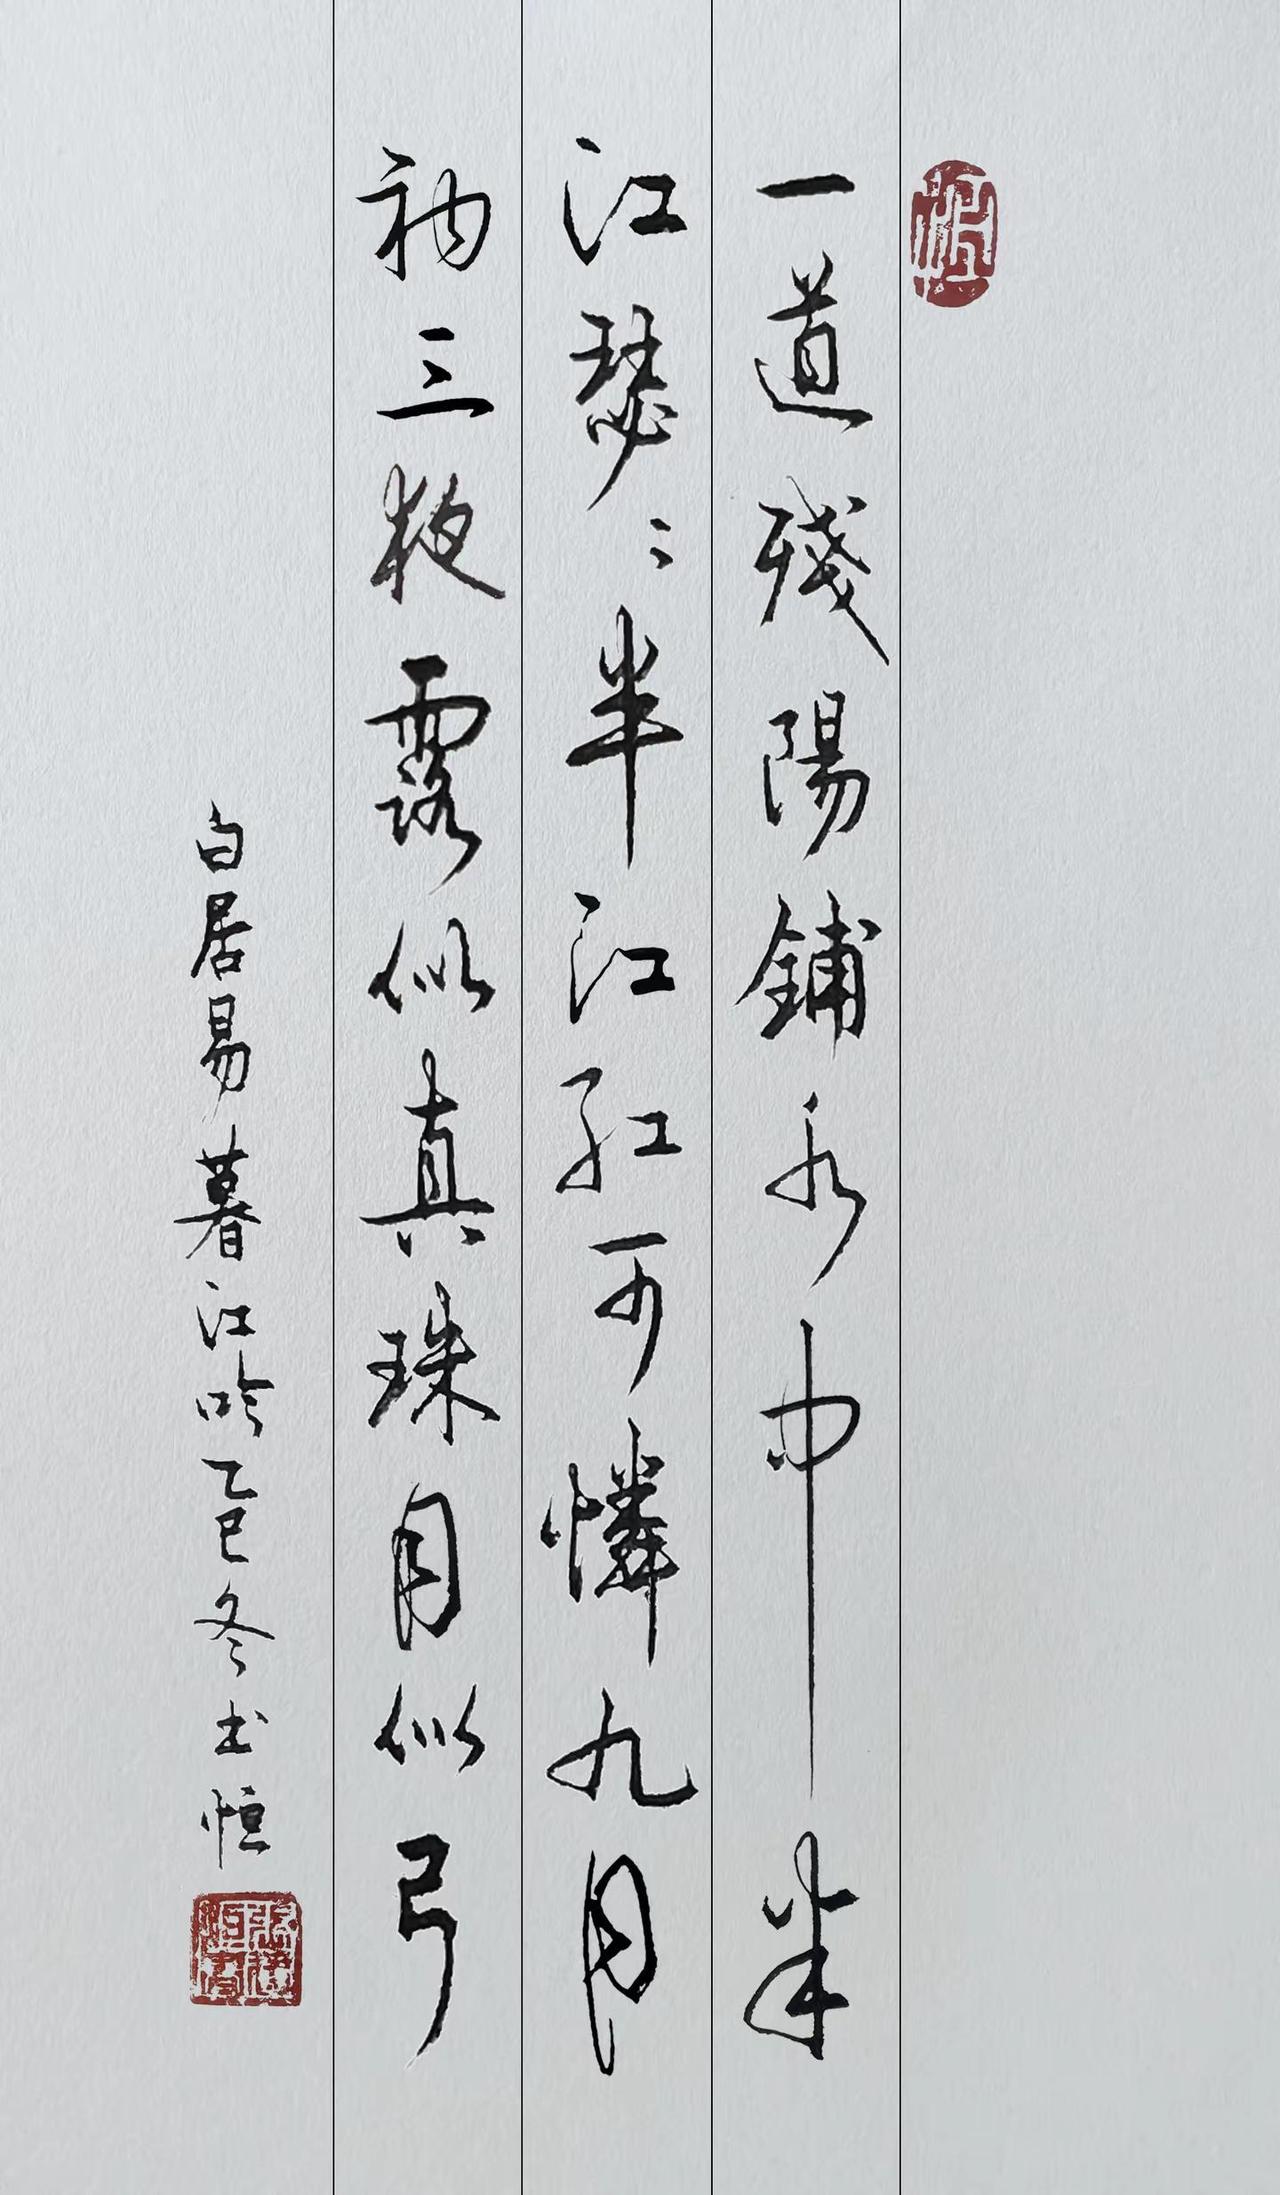 一道殘陽鋪水中半
江瑟〻半江紅可憐九月
初三夜露似真珠月似弓
白居易暮江吟乙巳冬书恒